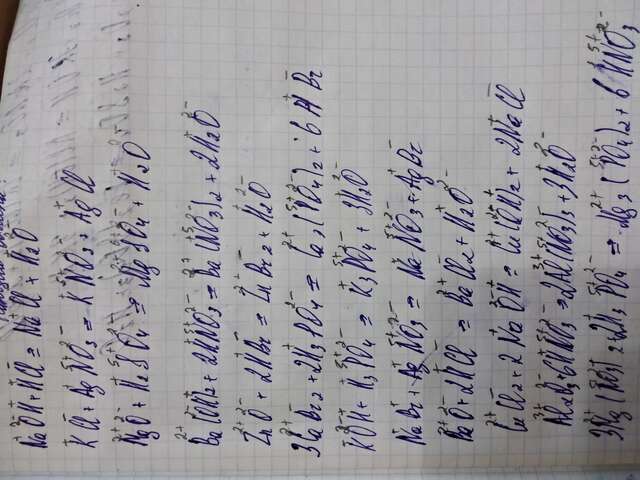 реакции обмена:
NaOH + HCl = NaCl + H2O
KCl + AgNO3 = KNO3 + AgCl
MgO + H2SO4 = MgSO4 + H2O
Ba(OH)2 + 2HNO3 = Ba(NO3)2 + 2H2O
ZnO + 2HBr = ZnBr2 + H2O
3CaBr2 + 2H3PO4 = Ca3(PO4)2 + 6HBr
KOH + H3PO4 = K3PO4 + 3H2O
NaBr + AgNO3 = NaNO3 + AgBr
BaO + 2HCl = BaCl2 + H2O
CuCl2 + 2NaOH = Cu(OH)2 + 2NaCl
Al2O3 + 6HNO3 = 2Al(NO3)3 + 3H2O
3Mg(NO3)2 + 2H3PO4 = Mg3(PO4)2 + 6HNO3